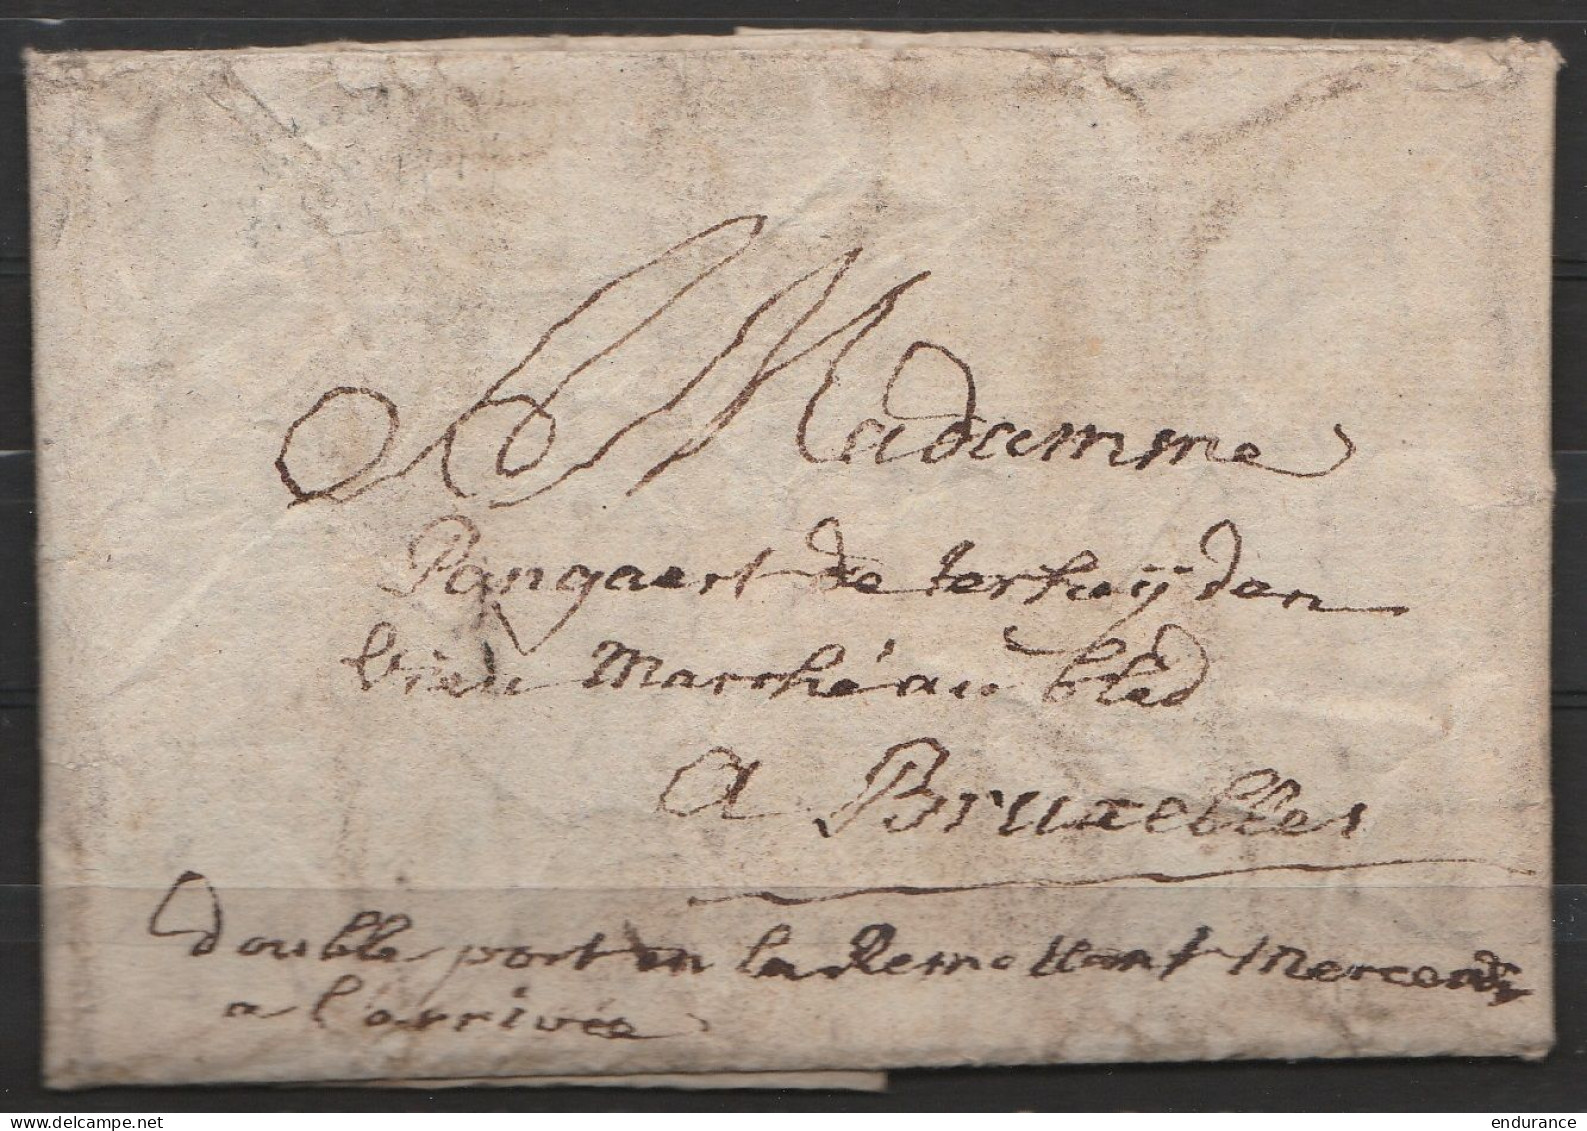 Madamme
Pangaert de terhuÿden
vieu Marché au bled
a Bruxelles
double port en la Remettant Mercredy
a l'arrivée
endurance